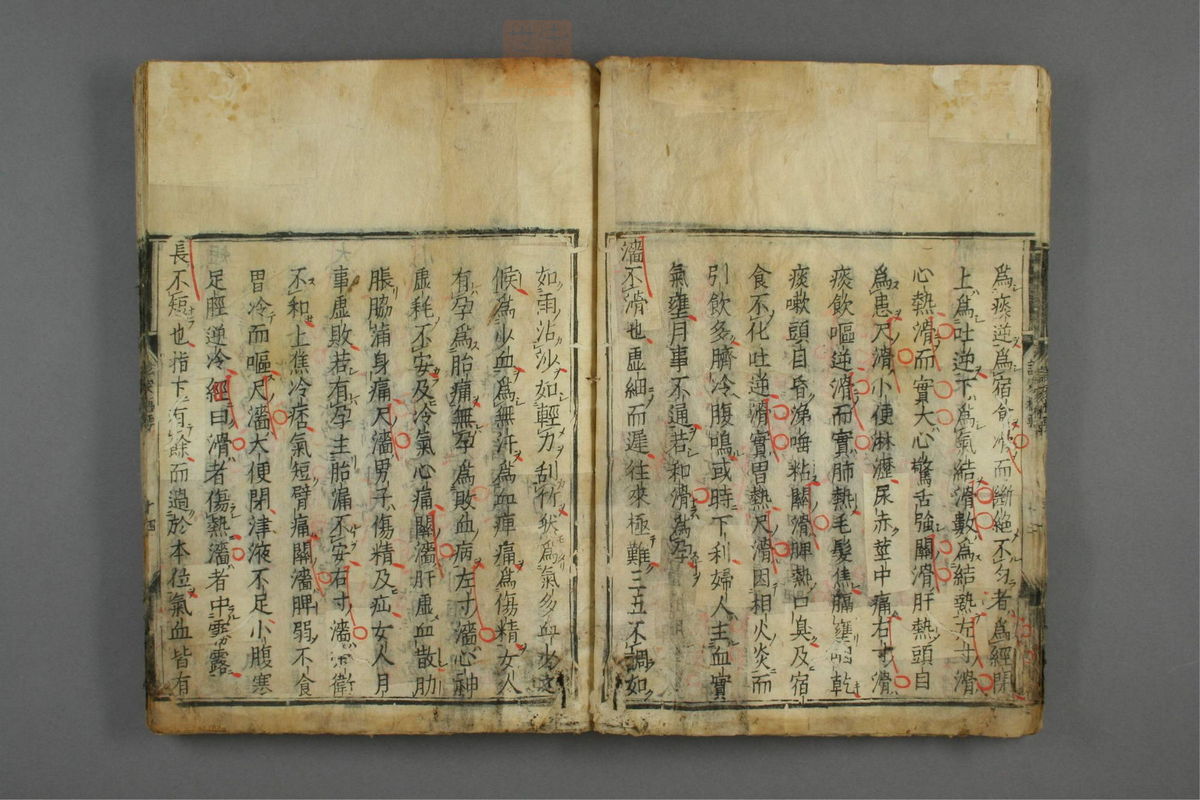 為痰逆為宿食滑而斷絕不勻者為經閉
上為吐逆下為氣結滑數為結熱左寸滑
心熱滑而實大心驚舌強關滑肝熱頭目
為患尺滑小便淋瀝尿赤莖中痛右寸滑
痰飲嘔逆滑而實肺熱毛髮焦膈壅咽乾
痰嗽頭目昏涕唾粘關滑脾熱口臭及宿
食不化吐逆滑實胃熱尺滑因相火炎而
引飲多臍冷腹鳴或時下利婦人主血實
氣壅月事不通若和滑為孕
濇不滑也虛細而遲往來極難三五不調如
如雨沾沙如輕刀刮竹狀為氣多血少之
候為少血為無汗為血痺痛為傷精女人
有孕為胎痛無孕為敗血病左寸濇心神
虛耗不安及冷氣心痛關濇肝虛血散肋
脹脇滿身痛尺濇男子傷精及疝女人月
事虛敗若有孕主胎漏不安右寸濇榮衛
不和上焦冷痞氣短臂痛關濇脾弱不食
胃冷而嘔尺濇大便閉津液不足小腹寒
足脛逆冷經曰滑者傷熱濇者中霧露
長不短也指下有餘而過於本位氣血皆有
十四